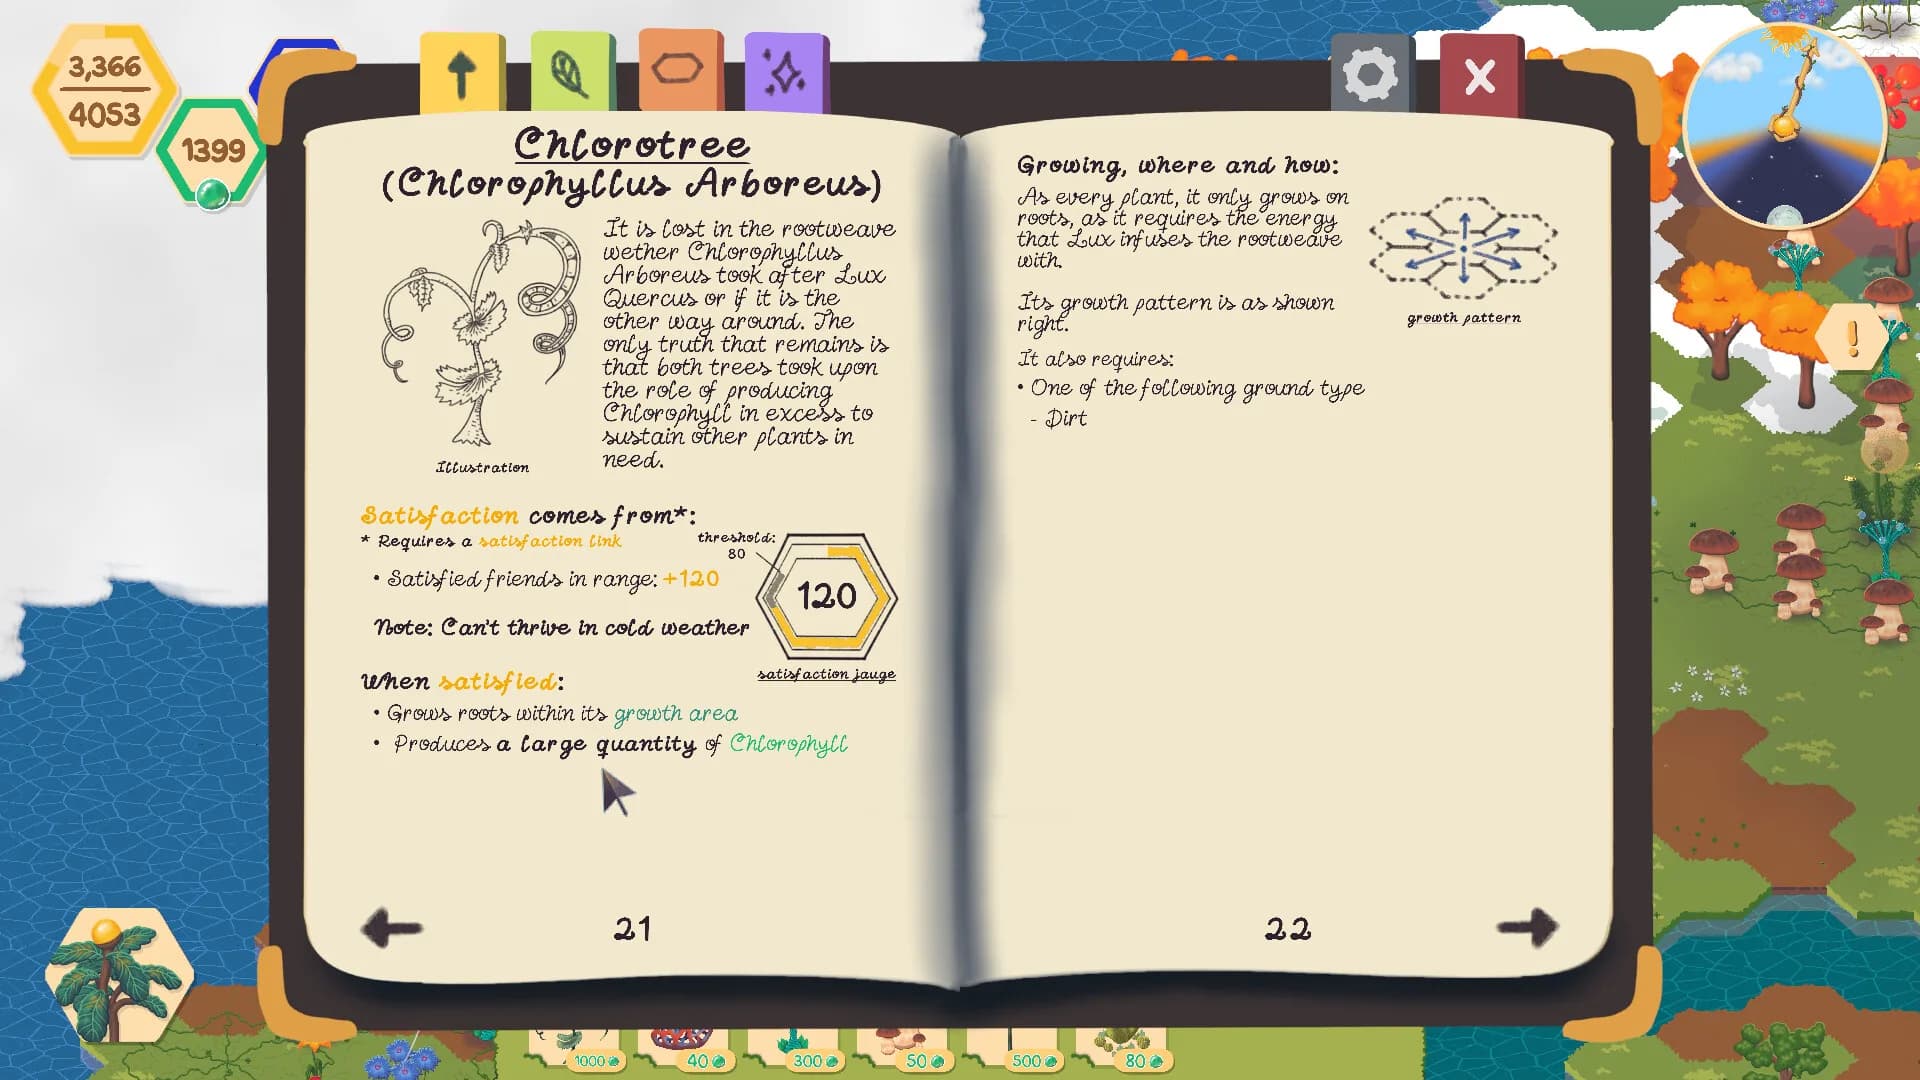 3,366
4053
1399
Chlorotree
(Chlorophyllus Arboreus)
It is lost in the rootweave
wether Chlorophyllus
Arboreus took after Lux
Quercus or if it is the
other way around. The
only truth that remains is
that both trees took upon
the role of producing
Chlorophyll in excess to
sustain other plants in
need.
Illustration
Satisfaction comes from*:
* Requires a satisfaction link
threshold:
80
• Satisfied friends in range: +120
120
Note: Can't thrive in cold weather
satisfaction jauge
When satisfied:
• Grows roots within its growth area
• Produces a large quantity of Chlorophyll
21
Growing, where and how:
As every plant, it only grows on
roots, as it requires the energy
that Lux infuses the rootweave
with.
Its growth pattern is as shown
right.
growth pattern
It also requires:
• One of the following ground type
- Dirt
22
!
1000
40
300
50
500
80